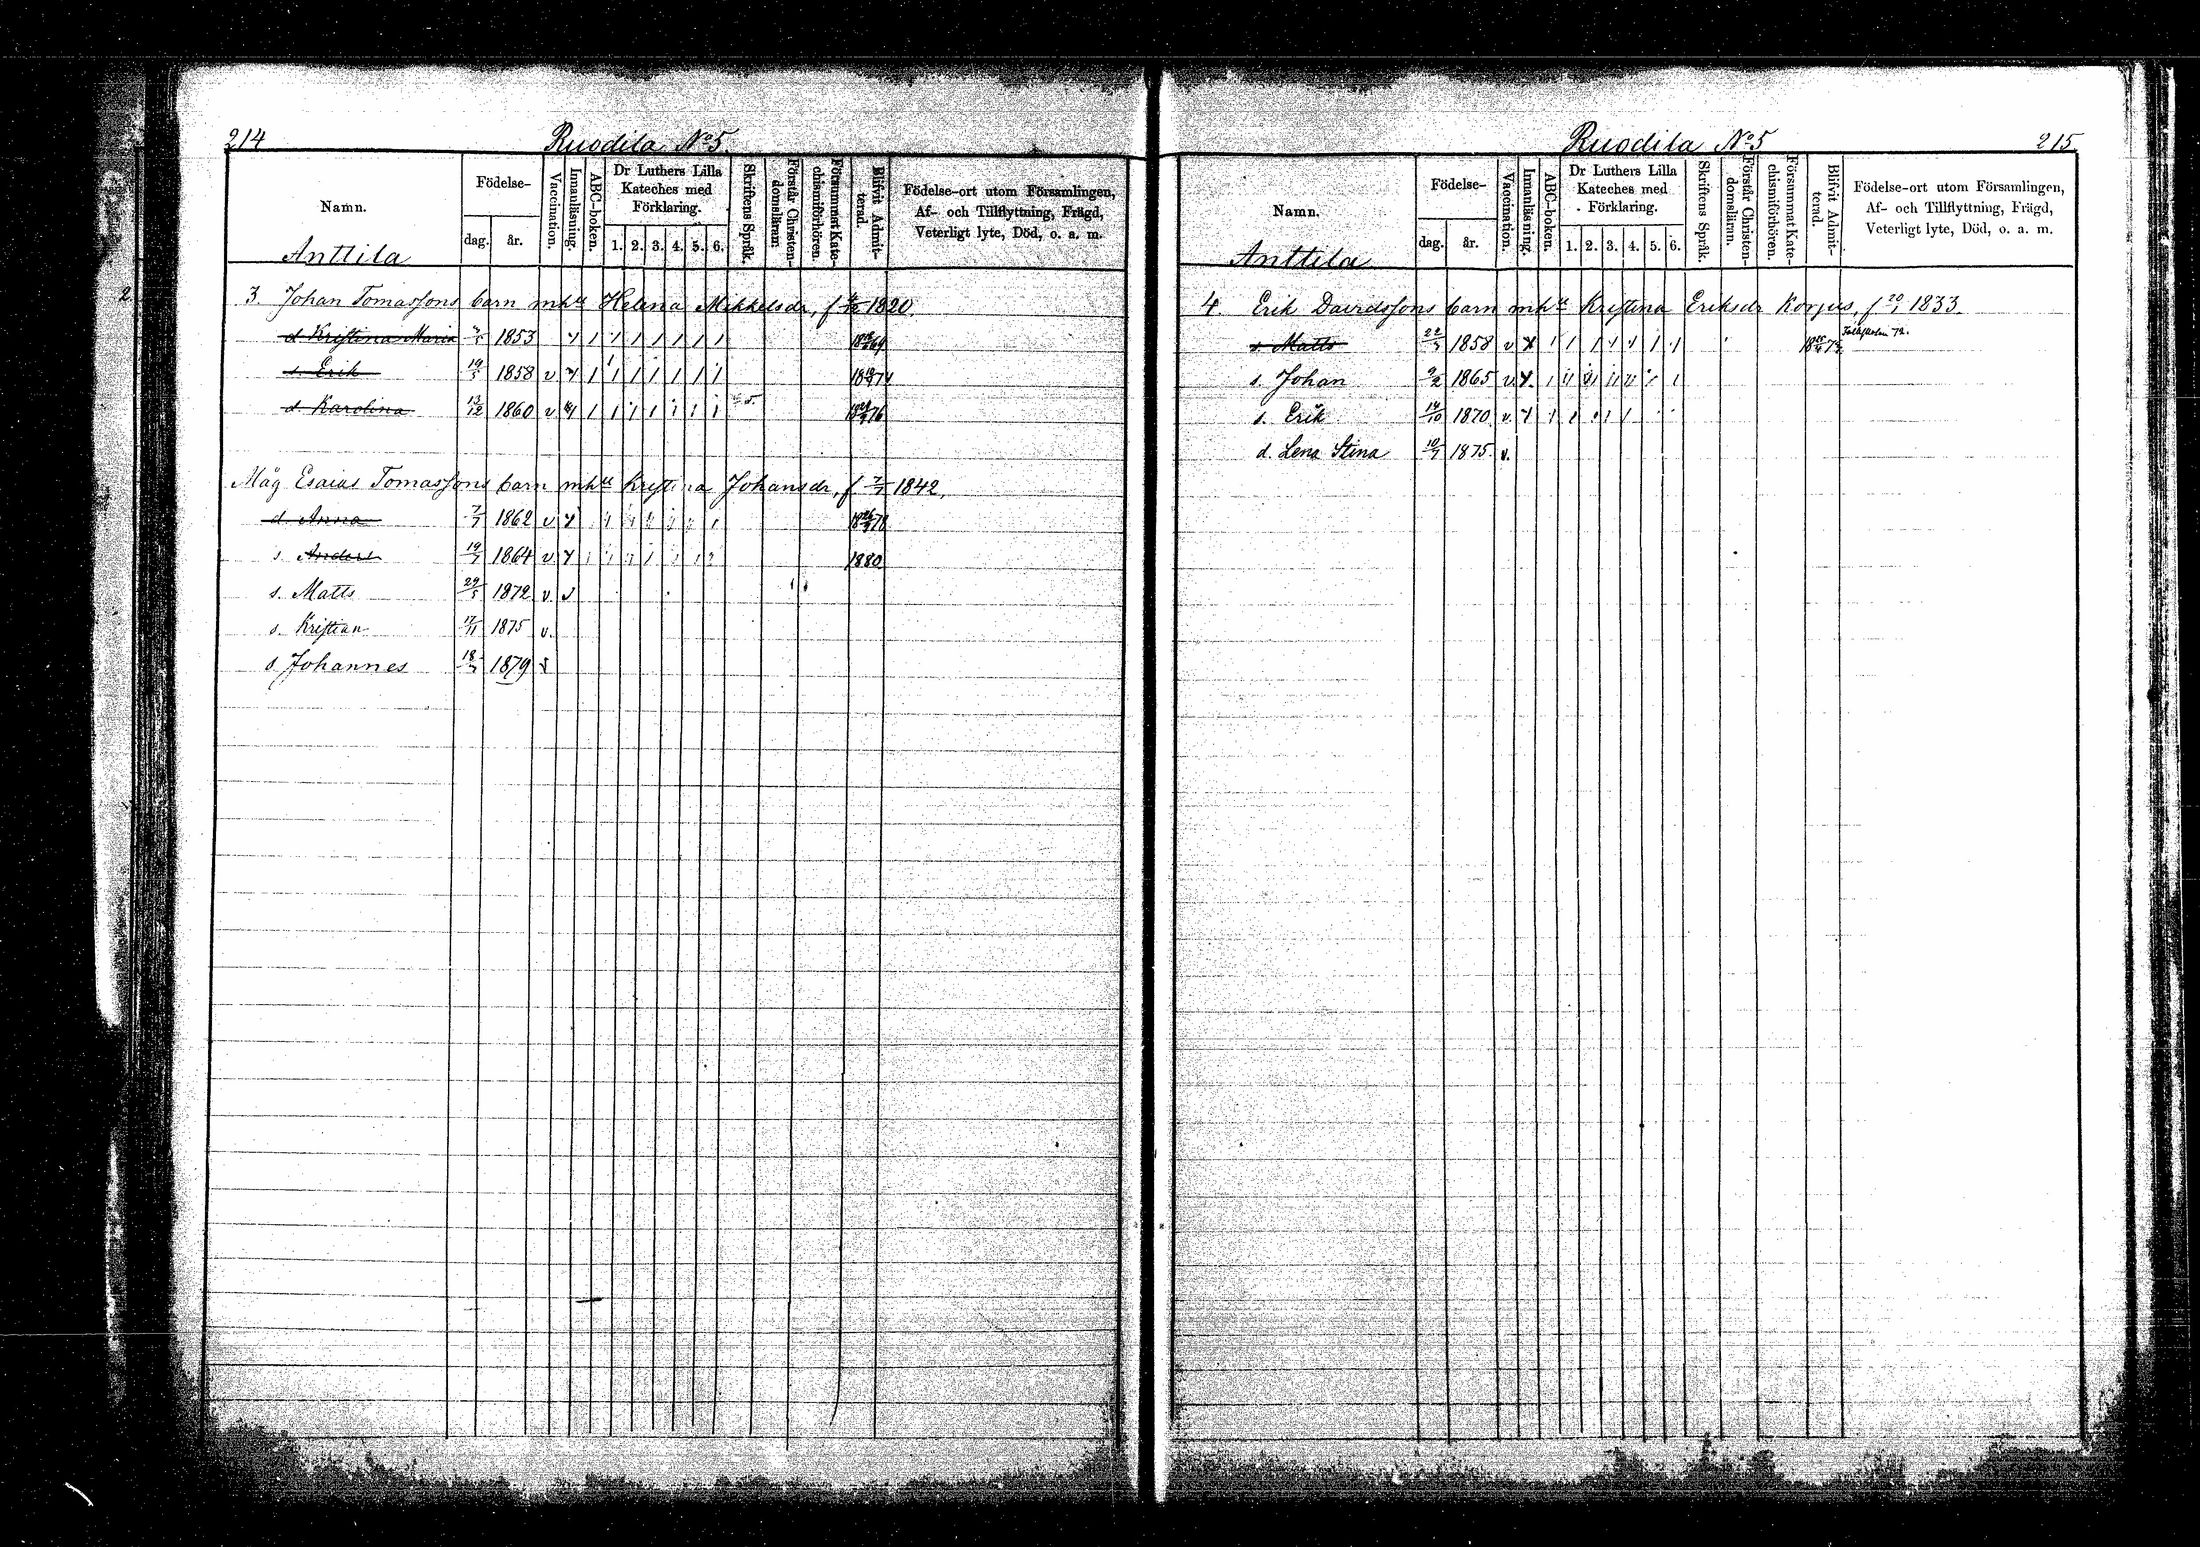 214
Ruodila No 5
Namn.
Födelse-
dag.
år.
Vaccination.
Innanläsning.
ABC-boken.
Dr Luthers Lilla
Kateches med
Förklaring.
1. 2. 3. 4. 5. 6.
Skriftens Språk.
Förstår Christen-
domsläran.
Försummat Kate-
chismiförhören.
Blifvit Admit-
terad.
Födelse-ort utom Församlingen,
Af- och Tillflyttning, Frägd,
Veterligt lyte, Död, o. a. m.
Anttila
3. Johan Tomassons barn mhu Helena Mikkelsdr, f 1820.
d Kristina Maria 1853
s. Erik 19/5 1858 v
d. Karolina 13/12 1860 v
Måg Esaias Tomassons barn mhu Kristina Johansdr, f 7/7 1842.
d. Anna 7/7 1862 v 78
s. Anders 19/7 1864 v 1880
s. Matts 29/5 1872 v.
s. Kristian 17/11 1875 v.
s. Johannes 18/7 1879
Ruodila No 5
215.
Namn.
Födelse-
dag.
år.
Vaccination.
Innanläsning.
ABC-boken.
Dr Luthers Lilla
Kateches med
Förklaring.
1. 2. 3. 4. 5. 6.
Skriftens Språk.
Förstår Christen-
domsläran.
Försummat Kate-
chismiförhören.
Blifvit Admit-
terad.
Födelse-ort utom Församlingen,
Af- och Tillflyttning, Frägd,
Veterligt lyte, Död, o. a. m.
Anttila
4. Erik Davidssons barn mhu Kristina Eriksdr Korpus, f 20/1 1833.
s. Matts 1858 v
s. Johan 9/2 1865 v.
s. Erik 14/10 1870 v.
d. Lena Stina 10/7 1875. v.